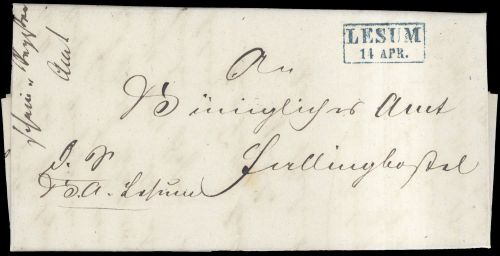 LESUM
14 APR.
An
Königliches Amt
Fallingbostel
d. S
K. A. Lesum
Amt